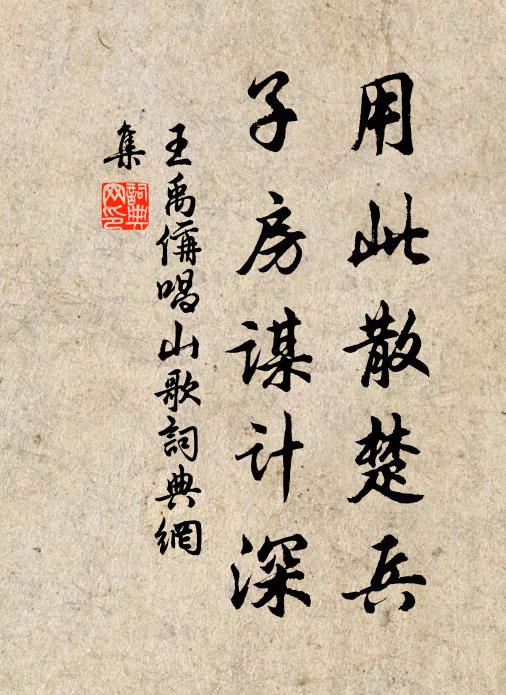 用此散楚兵
子房謀計深
王禹偁唱山歌詞典網
集
詞典网印